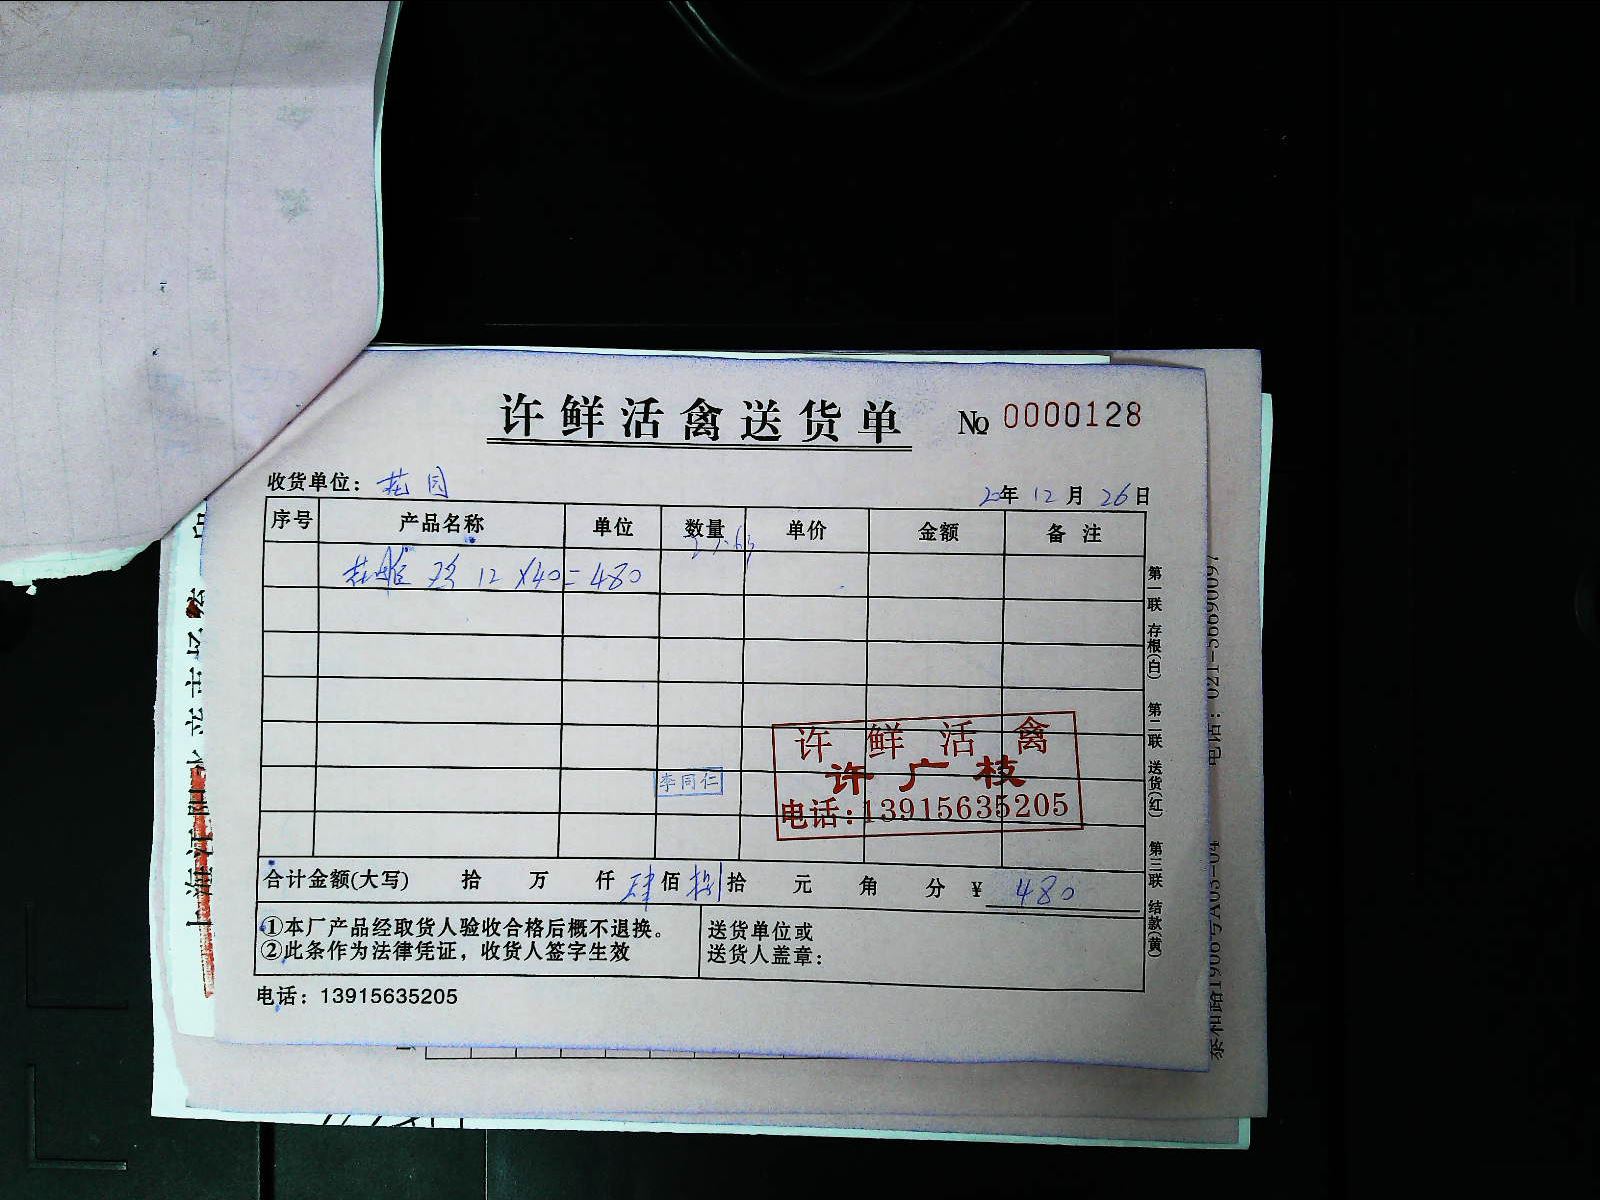 许鲜活禽送货单 № 0000128
收货单位： 花园
20年 12月 26日
序号 产品名称 单位 数量 单价 金额 备注
鸡 12 X40=480
许鲜活禽
许广枝
电话：13915635205
李同仁
合计金额(大写) 拾 万 仟 肆佰 捌拾 元 角 分 ¥ 480
①本厂产品经取货人验收合格后概不退换。
②此条作为法律凭证，收货人签字生效
送货单位或
送货人盖章：
电话：13915635205
第一联 存根(白) 第二联 送货(红) 第三联 结款(黄)